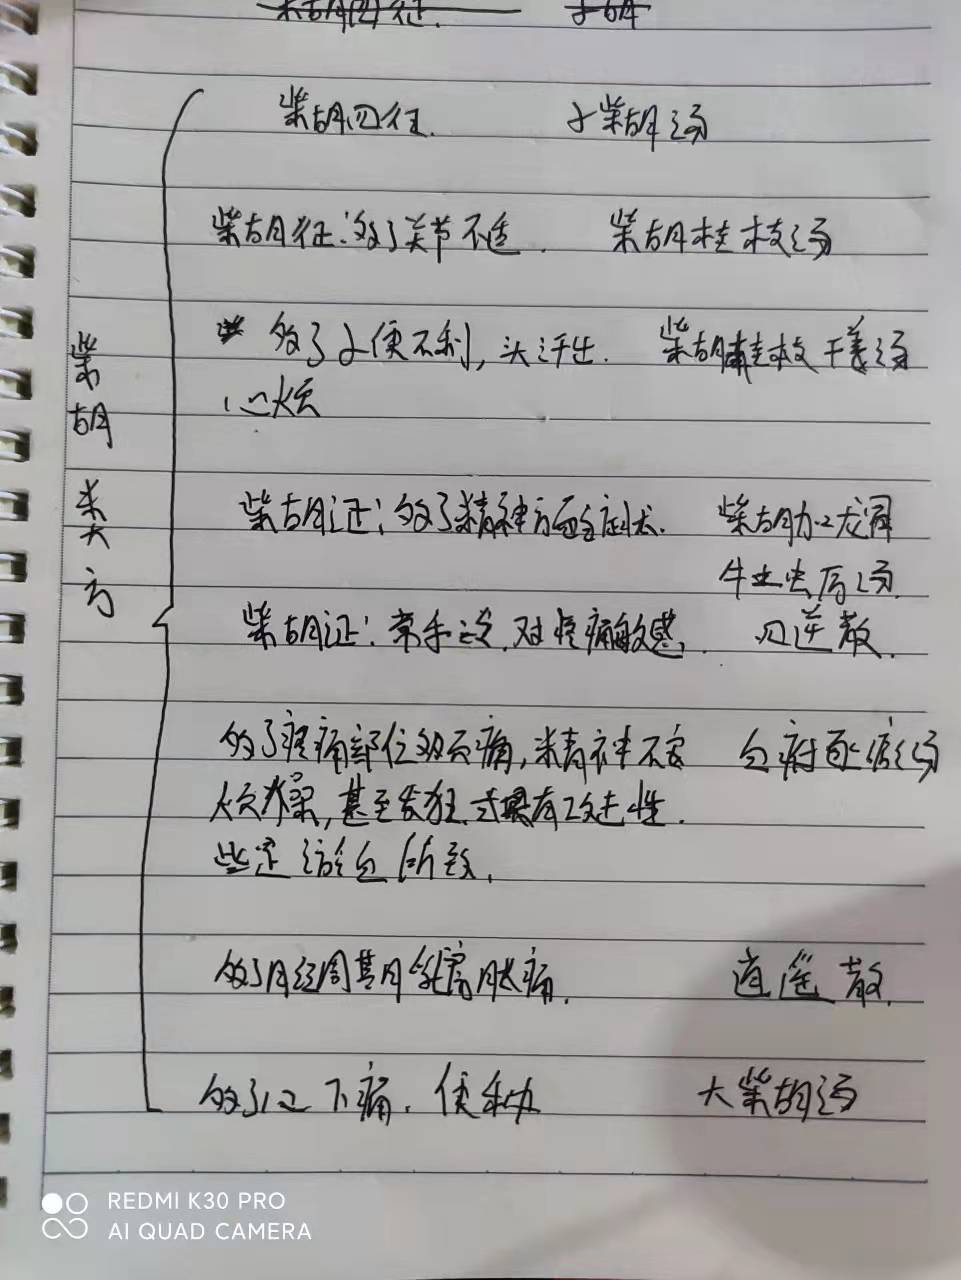 柴胡四征. 小柴胡汤
柴胡征:多了关节不适. 柴胡桂枝汤
多了小便不利,头汗出. 柴胡桂枝干姜汤
心烦
柴胡类方
柴胡证:多了精神方面症状. 柴胡加龙骨
牡蛎汤.
柴胡证:常手凉.对疼痛敏感, 四逆散.
多了疼痛部位如头痛,精神不安 血府逐瘀汤
烦躁,甚至发狂,式具有攻击性.
些淀瘀血所致.
多了月经周期乳房胀痛. 逍遥散.
多了心下痛.便秘 大柴胡汤
REDMI K30 PRO
AI QUAD CAMERA